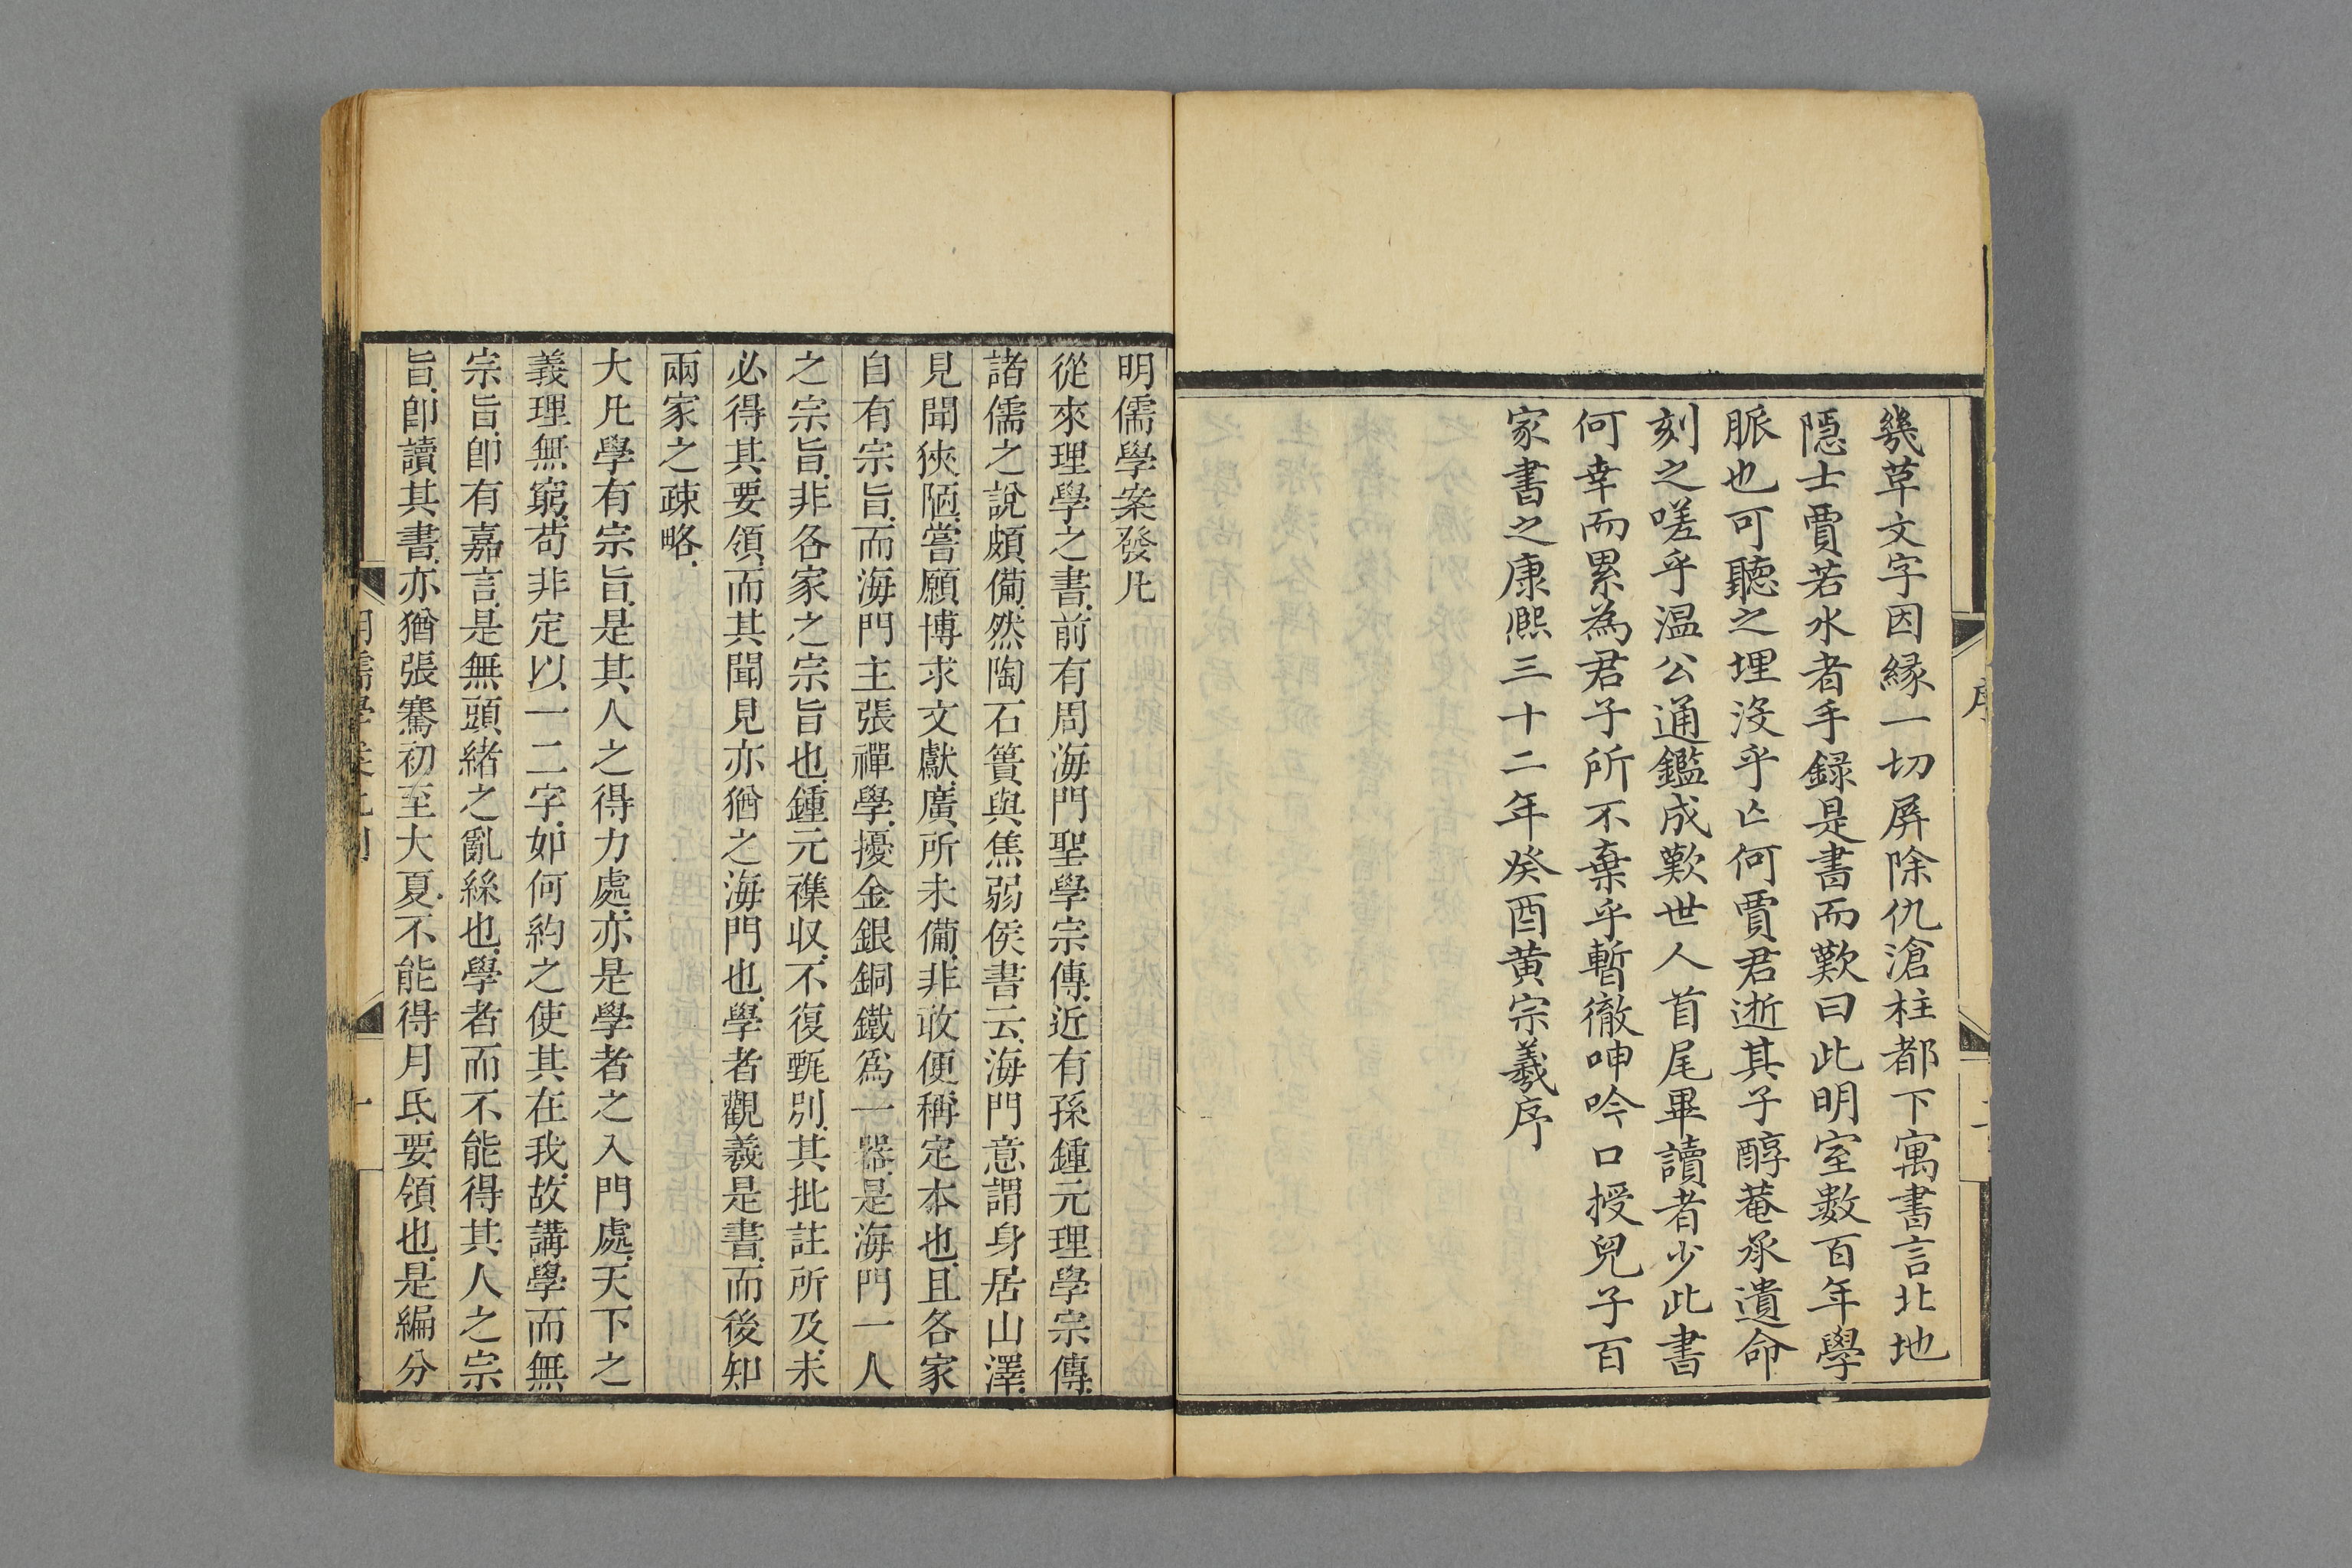 序
幾草文字因緣一切屏除仇滄柱都下寓書言北地
隱士賈若水者手録是書而歎曰此明室數百年學
脈也可聽之埋沒乎亡何賈君逝其子醇菴承遺命
刻之嗟乎温公通鑑成歎世人首尾畢讀者少此書
何幸而累為君子所不棄乎暫徹呻吟口授兒子百
家書之康熙三十二年癸酉黄宗羲序
明儒學案發凡
從來理學之書前有周海門聖學宗傳近有孫鍾元理學宗傳
諸儒之說頗備然陶石簣與焦弱侯書云海門意謂身居山澤
見聞狹陋嘗願博求文獻廣所未備非敢便稱定本也且各家
自有宗旨而海門主張禪學擾金銀銅鐵爲一器是海門一人
之宗旨非各家之宗旨也鍾元襍収不復甄別其批註所及未
必得其要領而其聞見亦猶之海門也學者觀羲是書而後知
兩家之疎略
大凡學有宗旨是其人之得力處亦是學者之入門處天下之
義理無窮苟非定以一二字如何約之使其在我故講學而無
宗旨卽有嘉言是無頭緒之亂絲也學者而不能得其人之宗
旨卽讀其書亦猶張騫初至大夏不能得月氏要領也是編分